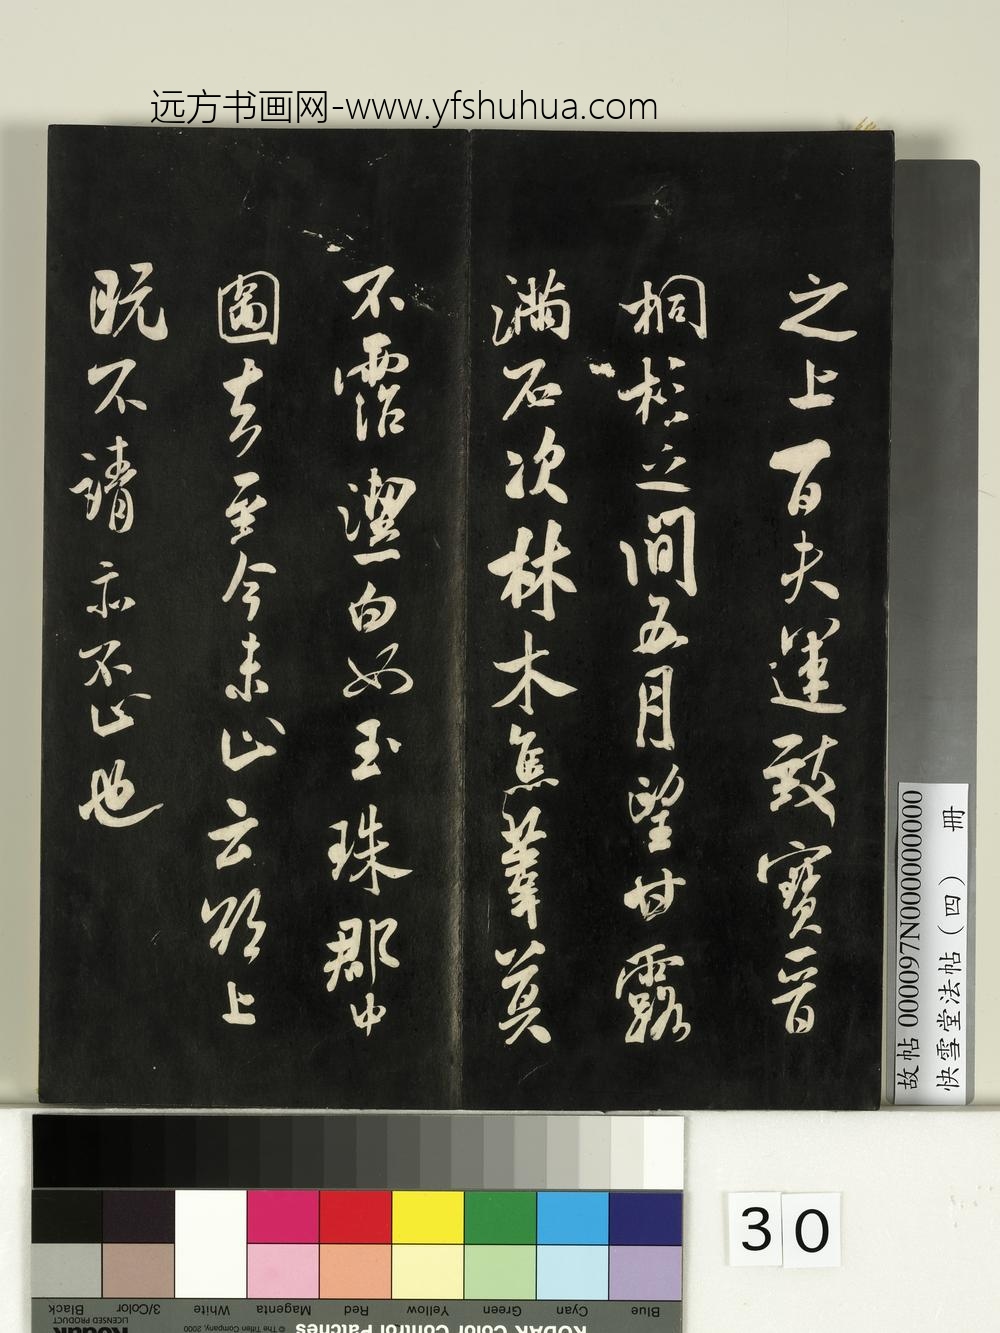 远方书画网-www.yfshuhua.com
之上百夫運致寶晉
桐杉之間五月望甘露
滿石次林木焦葦莫
不霑潔白如玉珠郡中
圖去至今未止云欲上
既不請亦不止也
故帖 000097N000000000000
快雪堂法帖（四） 冊
30
KODAK Color Control Patches
© The Tiffen Company, 2000
Kodak
LICENSED PRODUCT
Blue Cyan Green Yellow Red Magenta White 3/Color Black